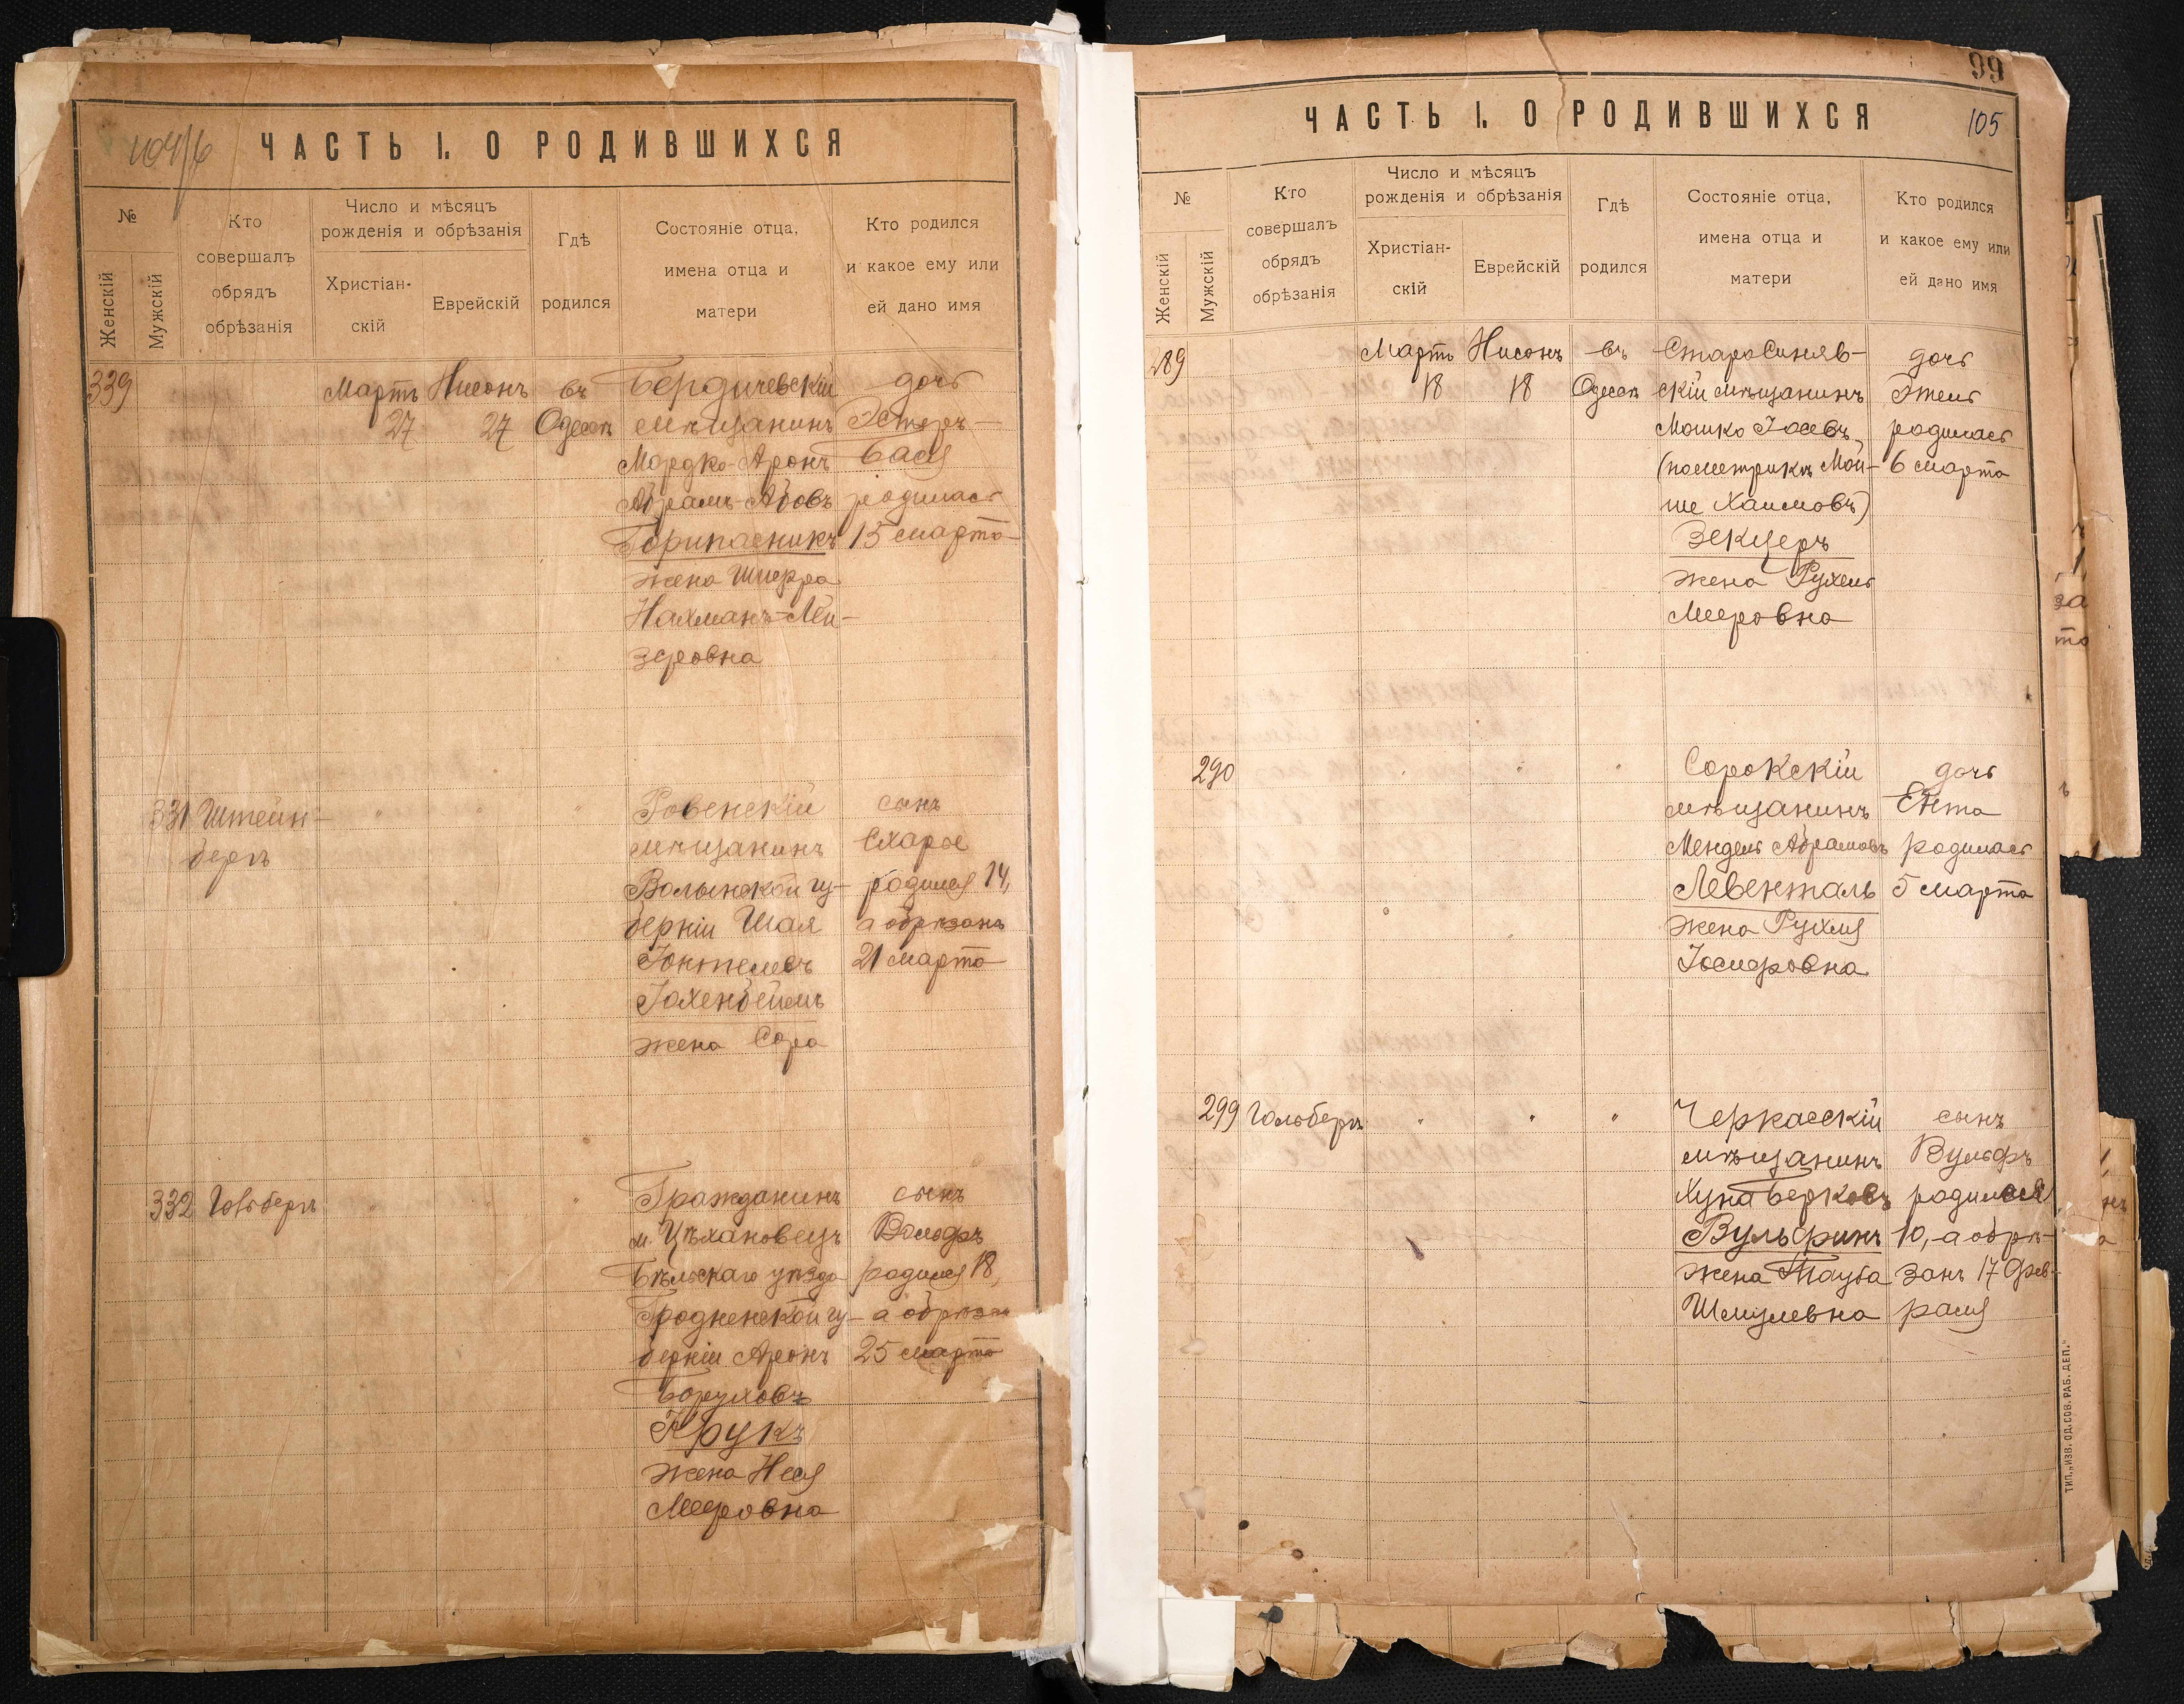 ЧАСТЬ I. О РОДИВШИХСЯ
№
Женскій
Мужскій
Кто
совершалъ
обрядъ
обрѣзанія
Число и мѣсяцъ
рожденія и обрѣзанія
Христіан-
скій
Еврейскій
Гдѣ
родился
Состояніе отца,
имена отца и
матери
Кто родился
и какое ему или
ей дано имя
339
Мартъ
27
Нисонъ
27
въ
Одессѣ
Бердичевскій
мѣщанинъ
Мордко-Аронъ
Абрамъ-Абовъ
жена
Нахманъ-Лей-
зеровна
дочь
Эстеръ-
Бася
родилась
15 марта
331
Штейн-
бергъ
Ровенскій
мѣщанинъ
Волынской гу-
берніи Шая
жена Сора
сынъ
родился 14,
а обрѣзанъ
21 марта
332
Гольберг
Гражданинъ
м. Цѣхановецъ
Бѣльскаго уѣзда
Гродненской гу-
берніи Аронъ
Боруховъ
Крукъ
жена Нися
Мееровна
сынъ
Вольфъ
родился 18,
а обрѣзан
25 марта
99
ЧАСТЬ I. О РОДИВШИХСЯ
105
№
Женскій
Мужскій
Кто
совершалъ
обрядъ
обрѣзанія
Число и мѣсяцъ
рожденія и обрѣзанія
Христіан-
скій
Еврейскій
Гдѣ
родился
Состояніе отца,
имена отца и
матери
Кто родился
и какое ему или
ей дано имя
289
Мартъ
18
Нисонъ
18
въ
Одессѣ
Старосиняв-
скій мѣщанинъ
Мошко Іосевъ,
(по метрикѣ Мой-
ше Хаимовъ)
Зекцеръ
жена Рухель
Мееровна
дочь
Этель
родилась
6 марта
290
Сорокскій
мѣщанинъ
Мендель Абрамовъ
Левенталь
жена Рухля
дочь
Ента
родилась
5 марта
299
Гольберг
Черкасскій
мѣщанинъ
Хуна Берковъ
Вульфинъ
жена Тауба
Шмулевна
сынъ
Вульфъ
родился
10, а обрѣ-
занъ 17 фев-
раля
ТИП. „ИЗВ. ОД. СОВ. РАБ. ДЕП."